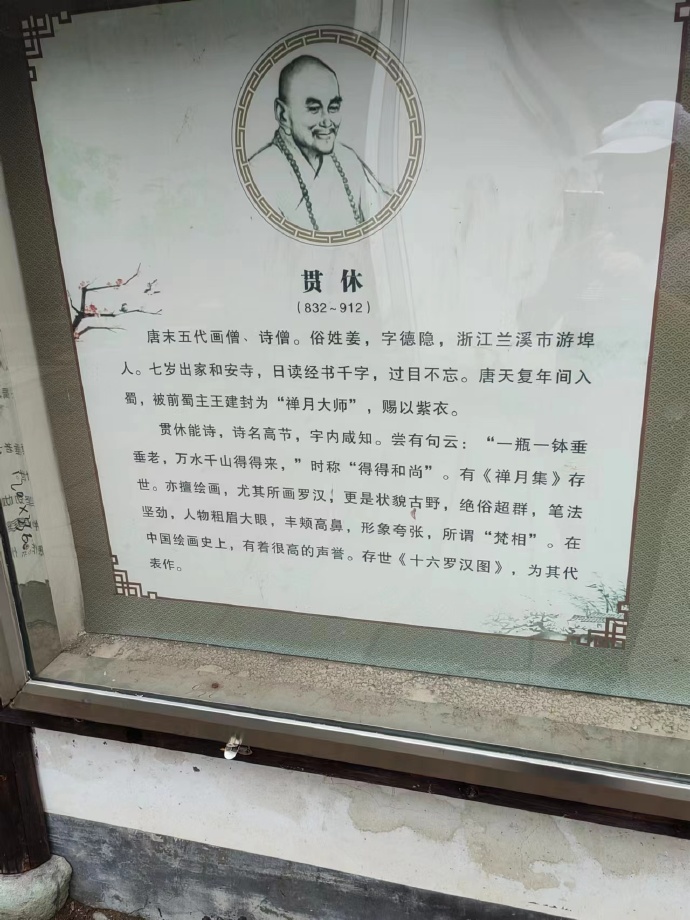 贯休
(832~912)
唐末五代画僧、诗僧。俗姓姜，字德隐，浙江兰溪市游埠
人。七岁出家和安寺，日读经书千字，过目不忘。唐天复年间入
蜀，被前蜀主王建封为“禅月大师”，赐以紫衣。
贯休能诗，诗名高节，宇内咸知。尝有句云：“一瓶一钵垂
垂老，万水千山得得来，”时称“得得和尚”。有《禅月集》存
世。亦擅绘画，尤其所画罗汉，更是状貌古野，绝俗超群，笔法
坚劲，人物粗眉大眼，丰颊高鼻，形象夸张，所谓“梵相”。在
中国绘画史上，有着很高的声誉。存世《十六罗汉图》，为其代
表作。